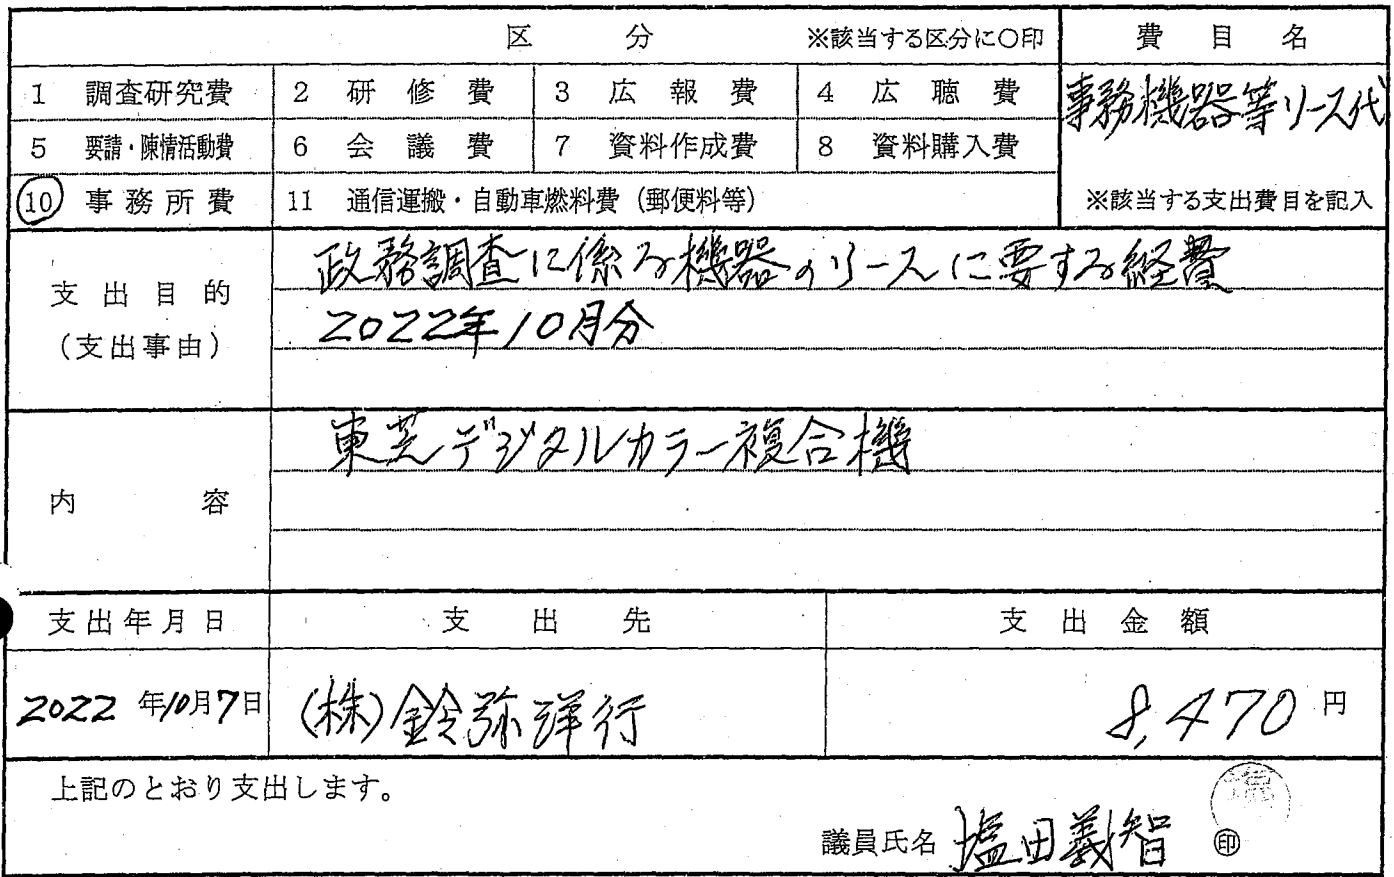 区 分 ※該当する区分に○印 費目名
1 調査研究費 2 研修費 3 広報費 4 広聴費 事務機器等リース代
5 要請・陳情活動費 6 会議費 7 資料作成費 8 資料購入費
10 事務所費 11 通信運搬・自動車燃料費(郵便料等) ※該当する支出費目を記入
支出目的 政務調査に係る機器のリースに要する経費
(支出事由) 2022年10月分
東芝デジタルカラー複合機
内容
支出年月日 支出先 支出金額
2022年10月7日 (株)鈴弥洋行 8,470円
上記のとおり支出します。
議員氏名 塩田義智 ㊞